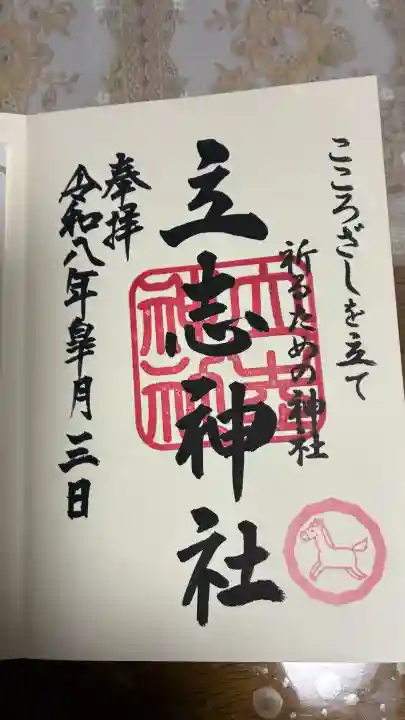 こころざしを立て
祈るための神社
立志神社
奉拝
令和八年皐月三日
立志神社